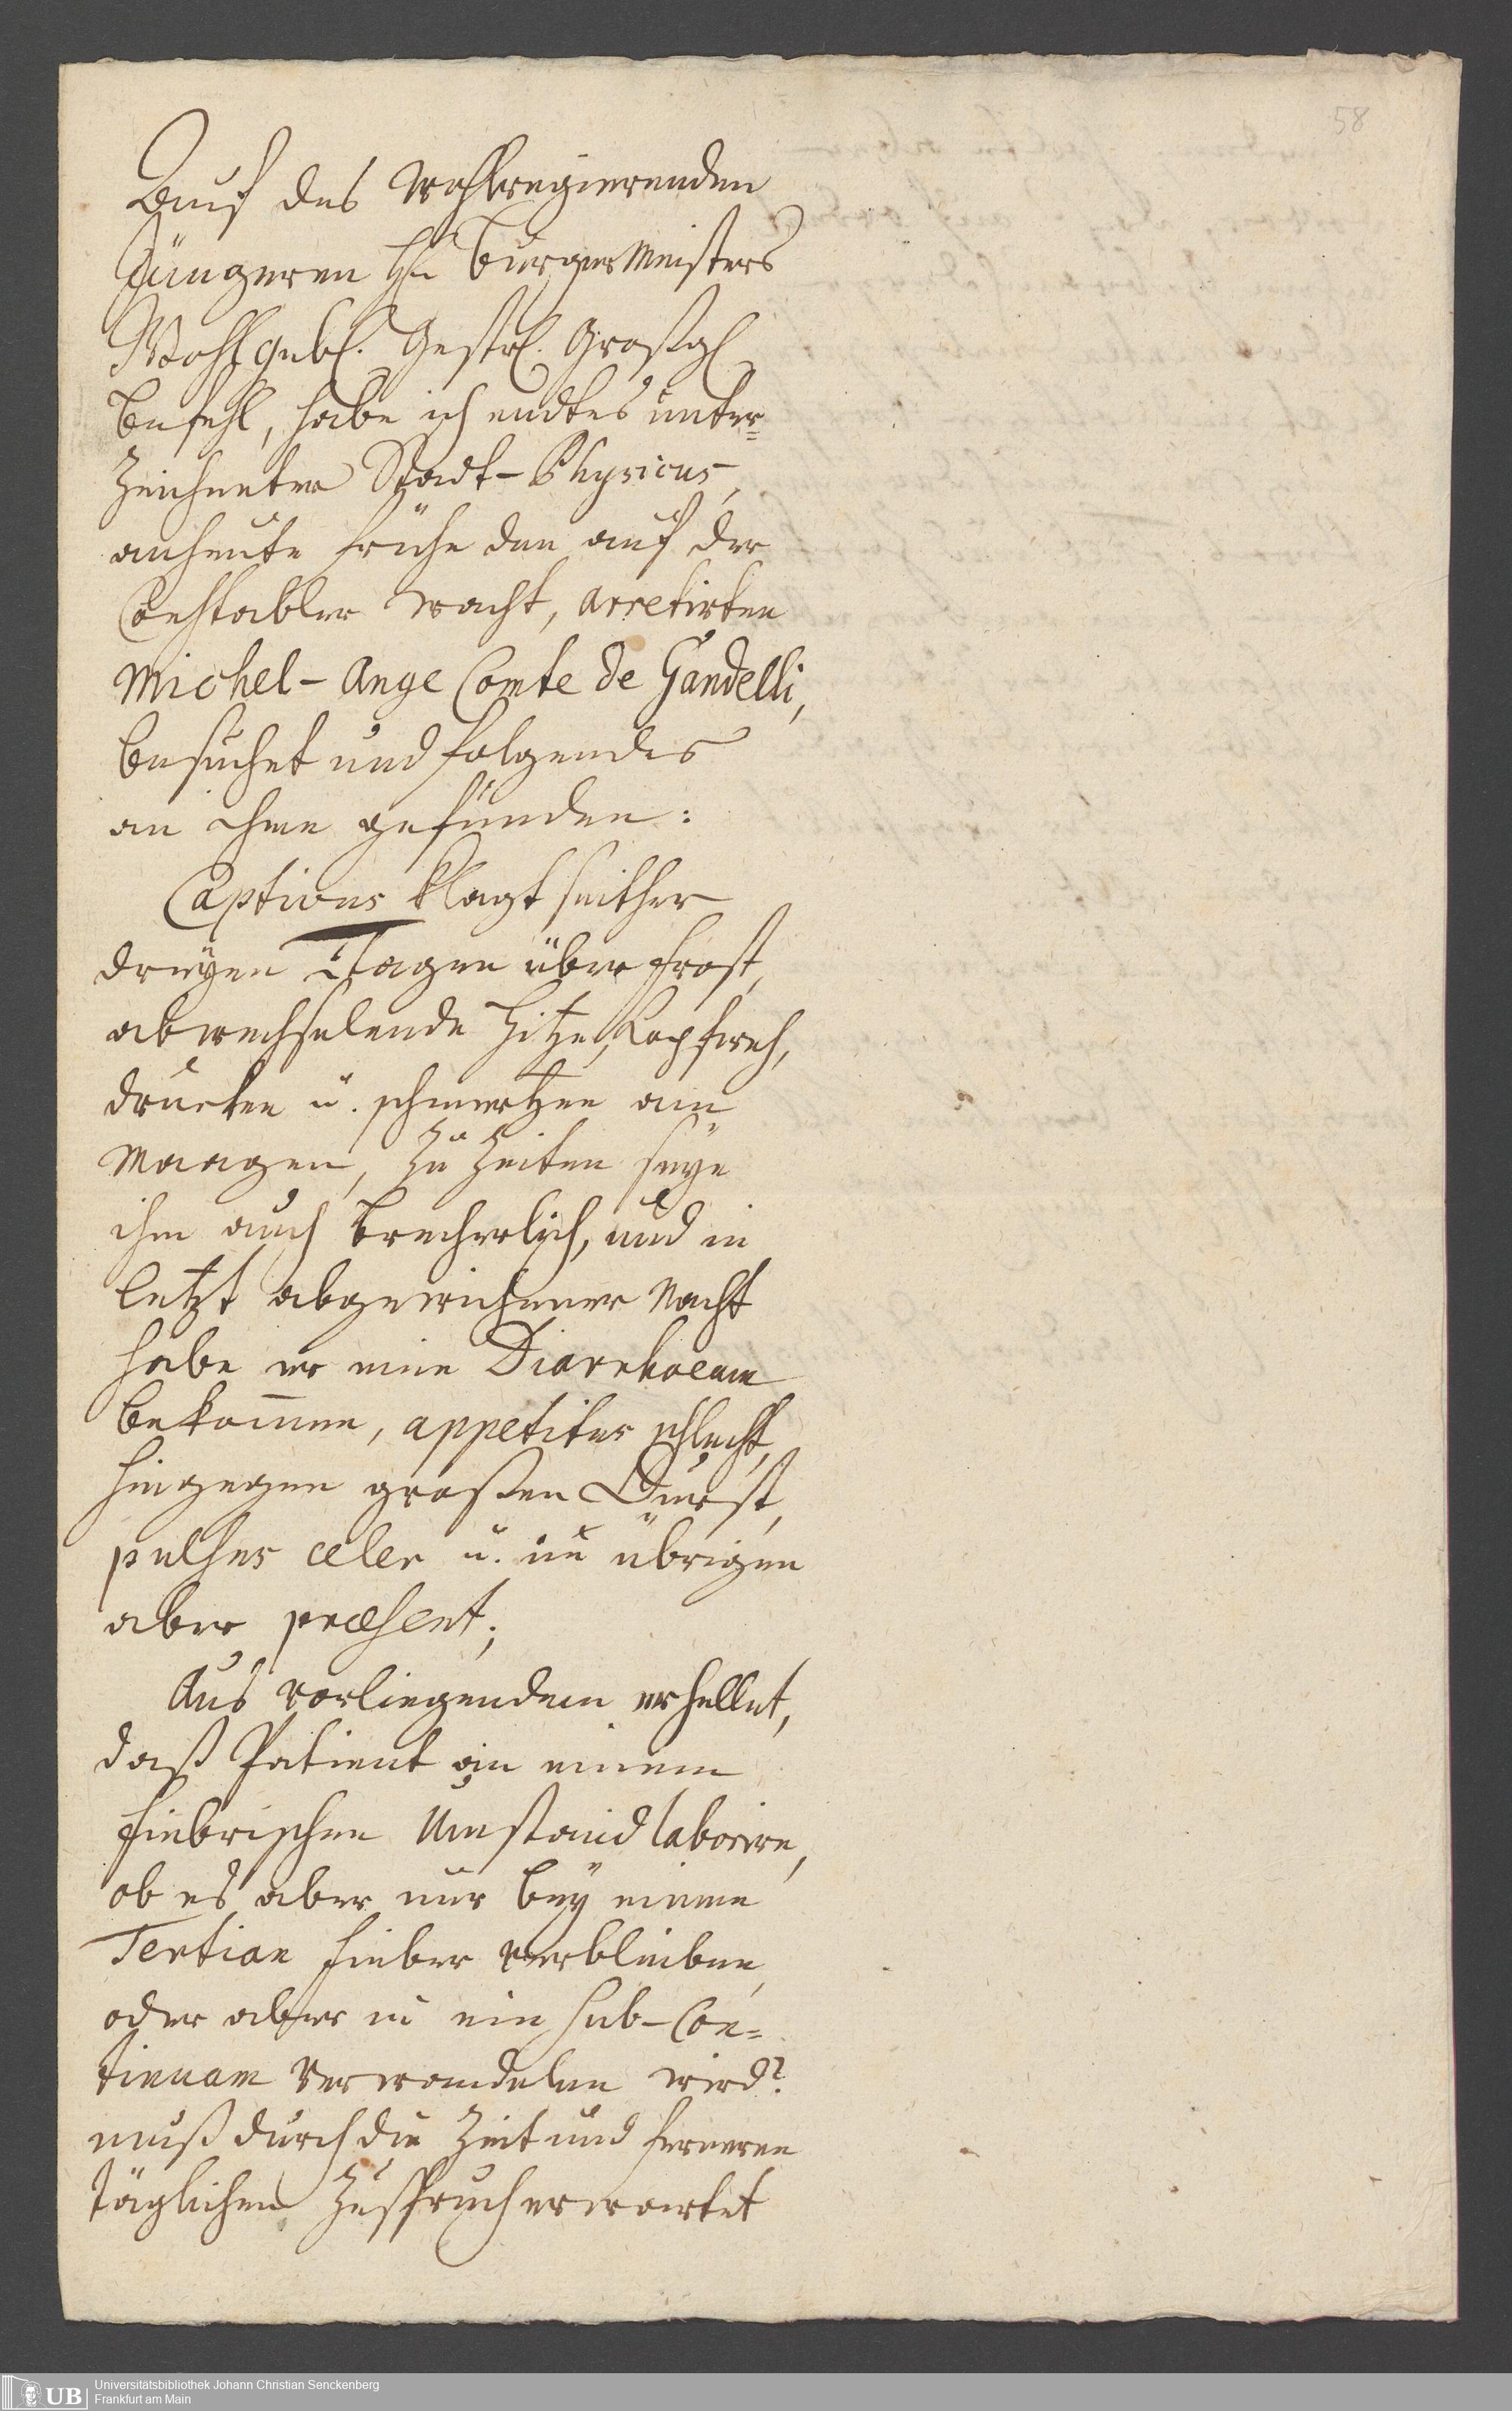 58
Auf des Wohlregierenden
Jüngeren H̄n Burger Meisters
Wohlgebl. Gestrl. Grosgl
befehl, habe ich endtes unter=
zeichneter Stadt-Physicus,
anheute frühe den auf der
Constabler wacht, arretirten
Michel-Ange Comte de Gandelli,
besuchet und folgendes
an ihme gefunden:
Captivus klagt seither
dreyen Tagen über frost,
abwechselende Hitze, Kopfweh,
drucken u. schmertzen am
Maagen, zu Zeiten seye
ihm auch brecherlich, und in
letzt abgewichener Nacht
habe er eine Diarrhoeam
bekom̄en, appetitus schlecht,
hingegen großen Durst,
pulsus celer u. im übrigen
aber præsent;
Aus vorliegendem erhellet,
daß Patient an einem
fiebrischen Umstand laborire,
ob es aber nur bey einem
Tertian fieber verbleiben,
oder aber in ein sub-Con=
tinuam verwandelen wird?
muß durch die Zeit und ferneren
täglichen Zuspruch erwartet
UB
Universitätsbibliothek Johann Christian Senckenberg
Frankfurt am Main